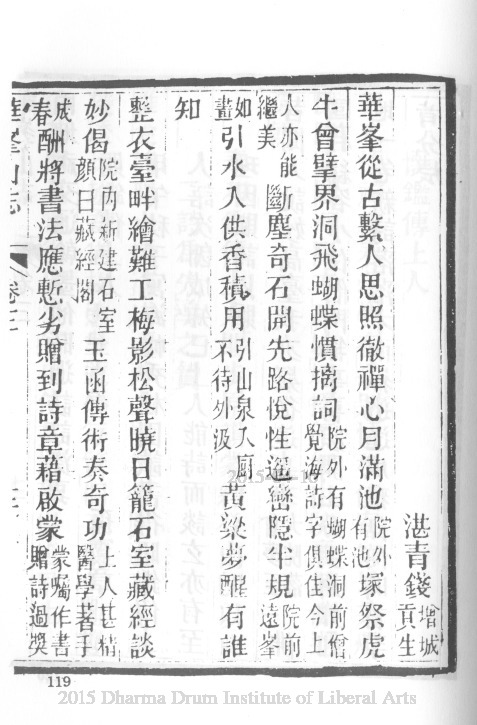 湛青錢增城貢生
華峯從古繫人思照徹禪心月滿池院外有池塚祭虎
牛曾擘界洞飛蝴蝶慣摛詞院外有蝴蝶洞前僧覺海詩字俱佳今上
人亦能繼美斷塵奇石開先路悅性遥巒隱半規院前遠峯
如畫引水入供香積用引山泉入厨不待外汲黃粱夢醒有誰
知
整衣臺畔繪難工梅影松聲曉日籠石室藏經談
妙偈院內新建石室顏曰藏經閣玉函傳術奏奇功上人甚精醫學著手
成春酬將書法應慙劣贈到詩章藉啟蒙蒙囑作書贈詩過獎
華峯山志 卷三
119
2015 Dharma Drum Institute of Liberal Arts